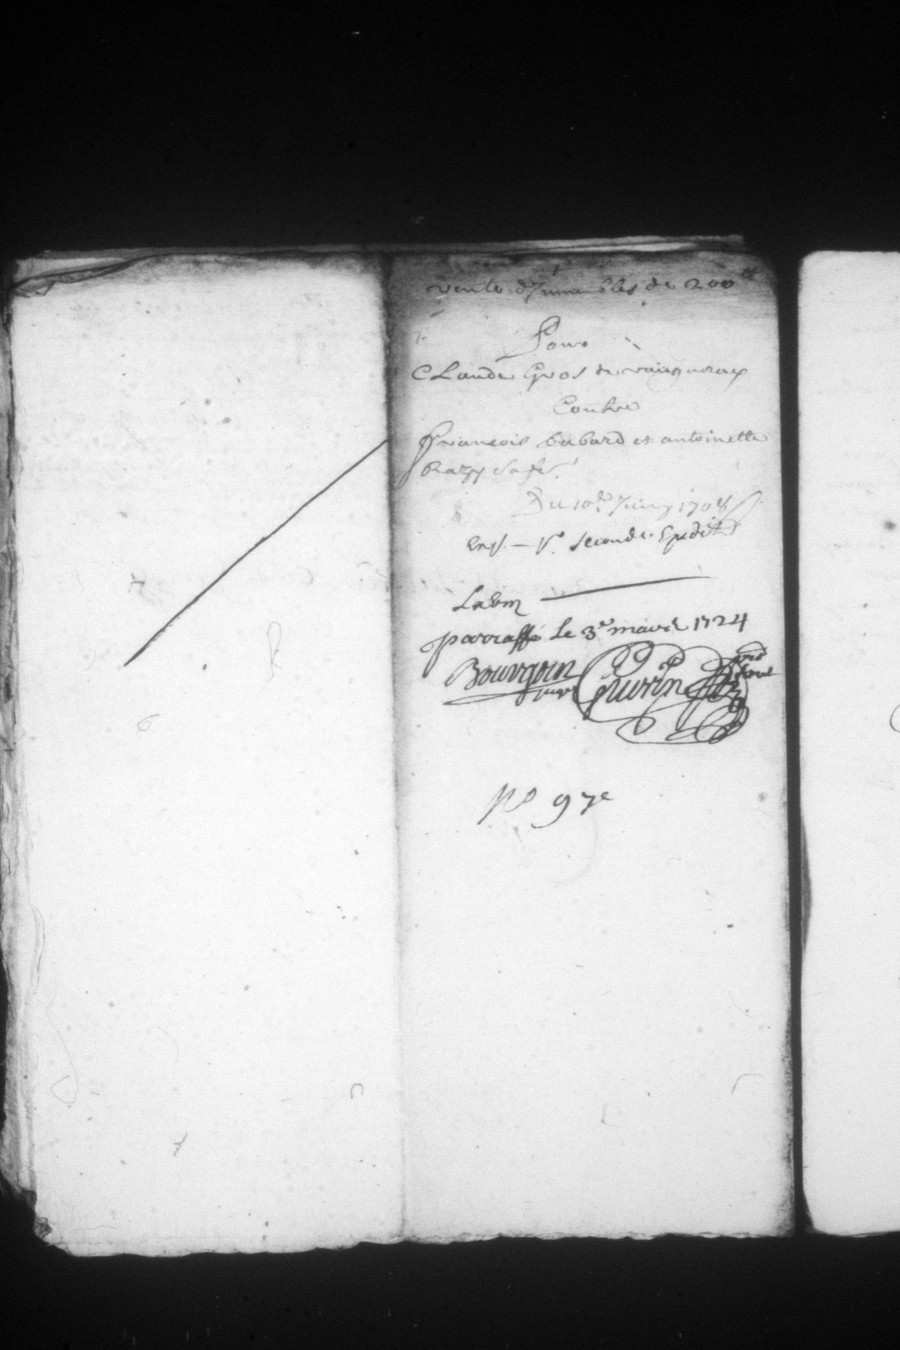 vente d'Jmmeubles de 200#
Pour
CLaude Gros de vaugneray
Contre
françois babard et antoinette
Razy sa fe.
Du 10e Juing 1708
Seconde Expedit
parraffé le 3e mars 1724
Bourgoin Guerin
No 97e